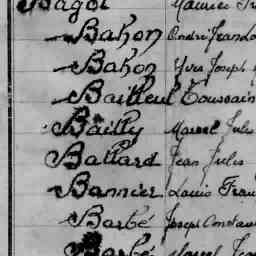 Bagot Maurice
Bahon André Jean
Bahon Yves Joseph
Bailleul Toussain
Bailly Marcel Jules
Ballard Jean Jules
Bannier Louis Fran
Barbé Joseph Constan
Barbé Marcel Jean